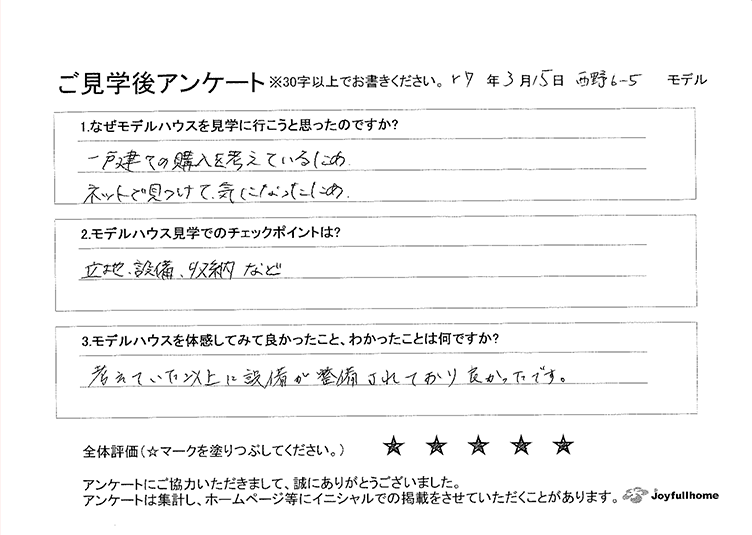 ご見学後アンケート ※30字以上でお書きください。 r7 年 3 月 15 日 西野6-5 モデル
1.なぜモデルハウスを見学に行こうと思ったのですか?
一戸建ての購入を考えているため。
ネットで見つけて、気になったため。
2.モデルハウス見学でのチェックポイントは?
立地、設備、収納 など
3.モデルハウスを体感してみて良かったこと、わかったことは何ですか?
考えていた以上に設備が整備されており良かったです。
全体評価(☆マークを塗りつぶしてください。) ★ ★ ★ ★ ★
アンケートにご協力いただきまして、誠にありがとうございました。
アンケートは集計し、ホームページ等にイニシャルでの掲載をさせていただくことがあります。 Joyfullhome